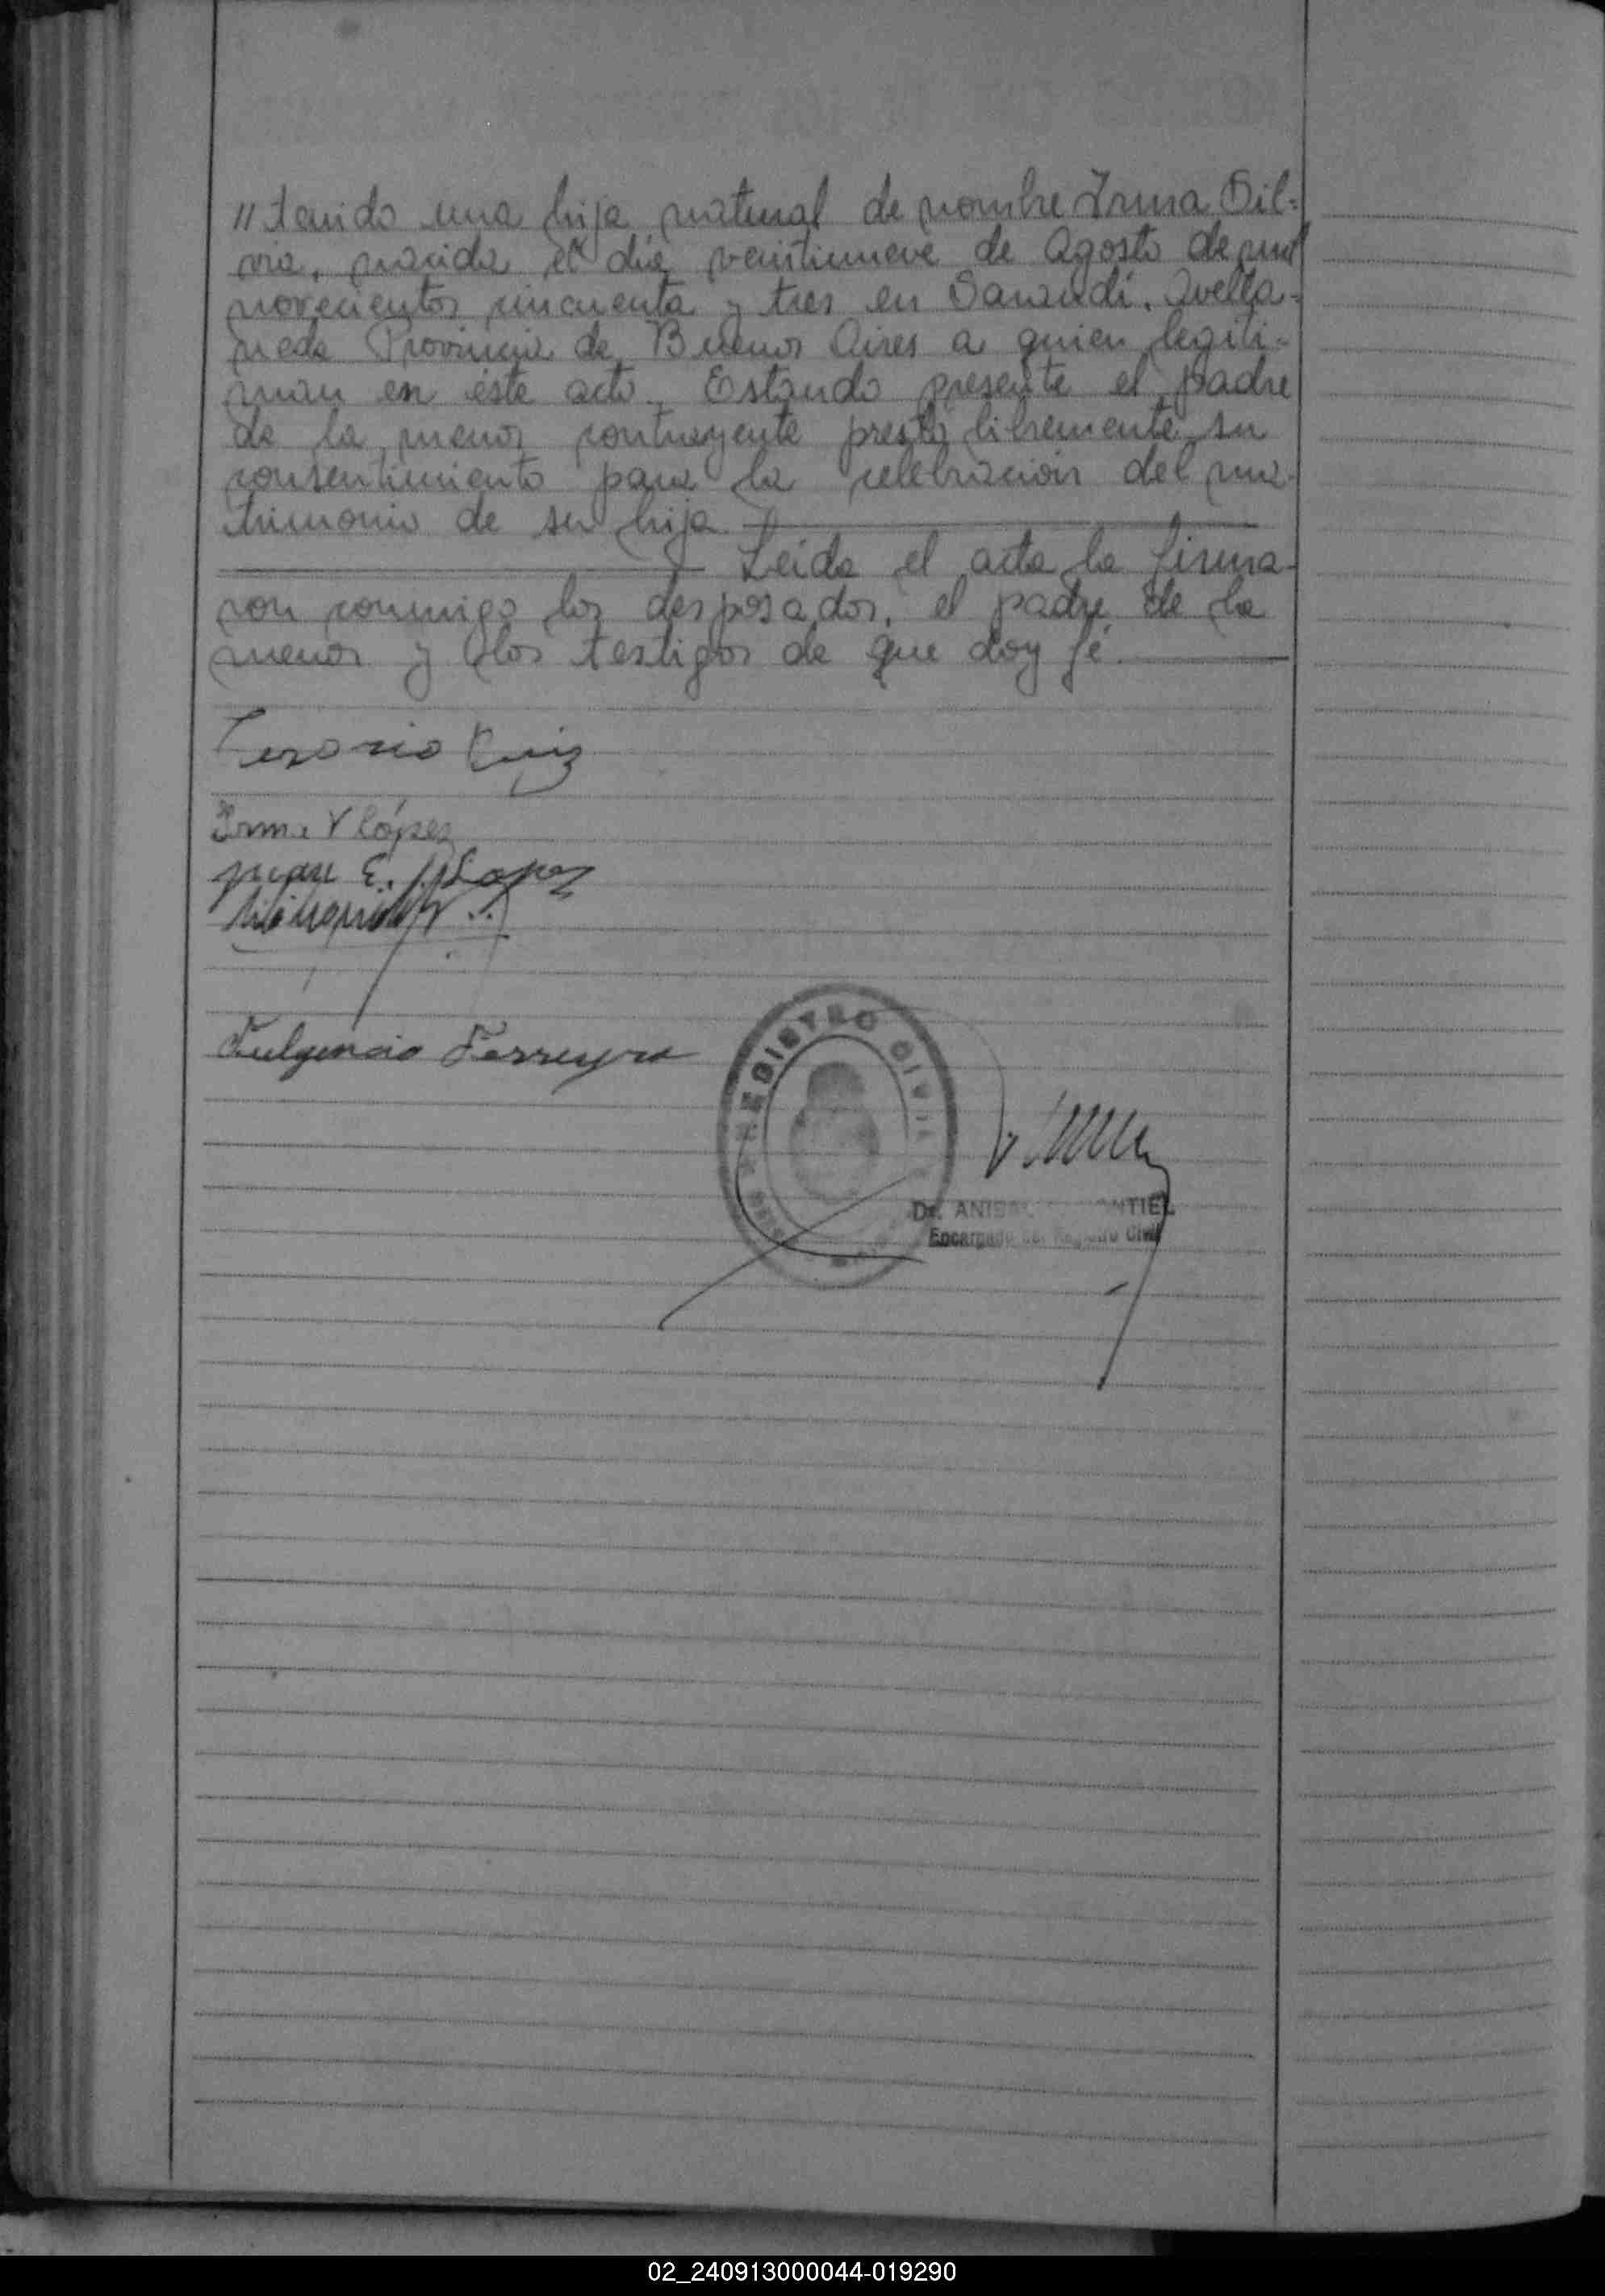 // tenido una hija natural de nombre Irma Sil-
via, nacida el día veintinueve de Agosto de mil
novecientos cincuenta y tres en Sarandí, Avella-
neda Provincia de Buenos Aires a quien legiti-
man en éste acto. Estando presente el padre
de la menor contrayente prestó libremente su
consentimiento para la celebración del ma-
trimonio de su hija.
Leída el acta la firma-
ron conmigo los desposados, el padre de la
menor y los testigos de que doy fé.
Ruiz
Irma V López
Juan E. López
Fulgencio Ferreyra
REGISTRO CIVIL
Dr. ANIBAL
Encargado del Registro Civil
02_240913000044-019290